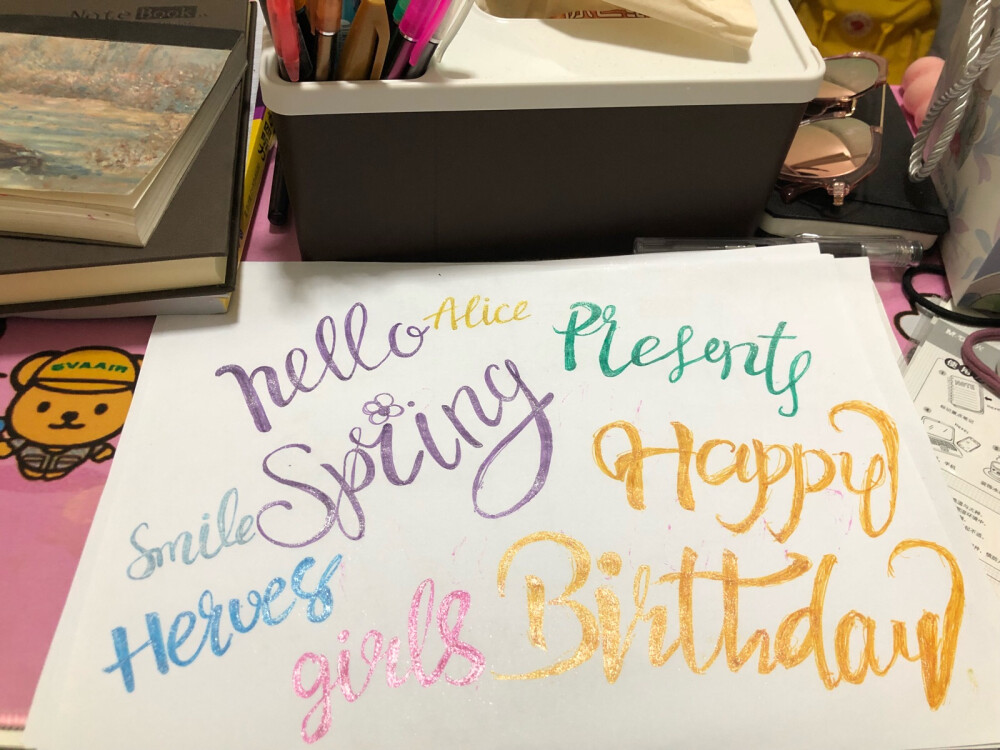 Note Book
SVAAIR
hello
Alice
Presents
Spring
Happy
Smile
Herves
girls
Birthday